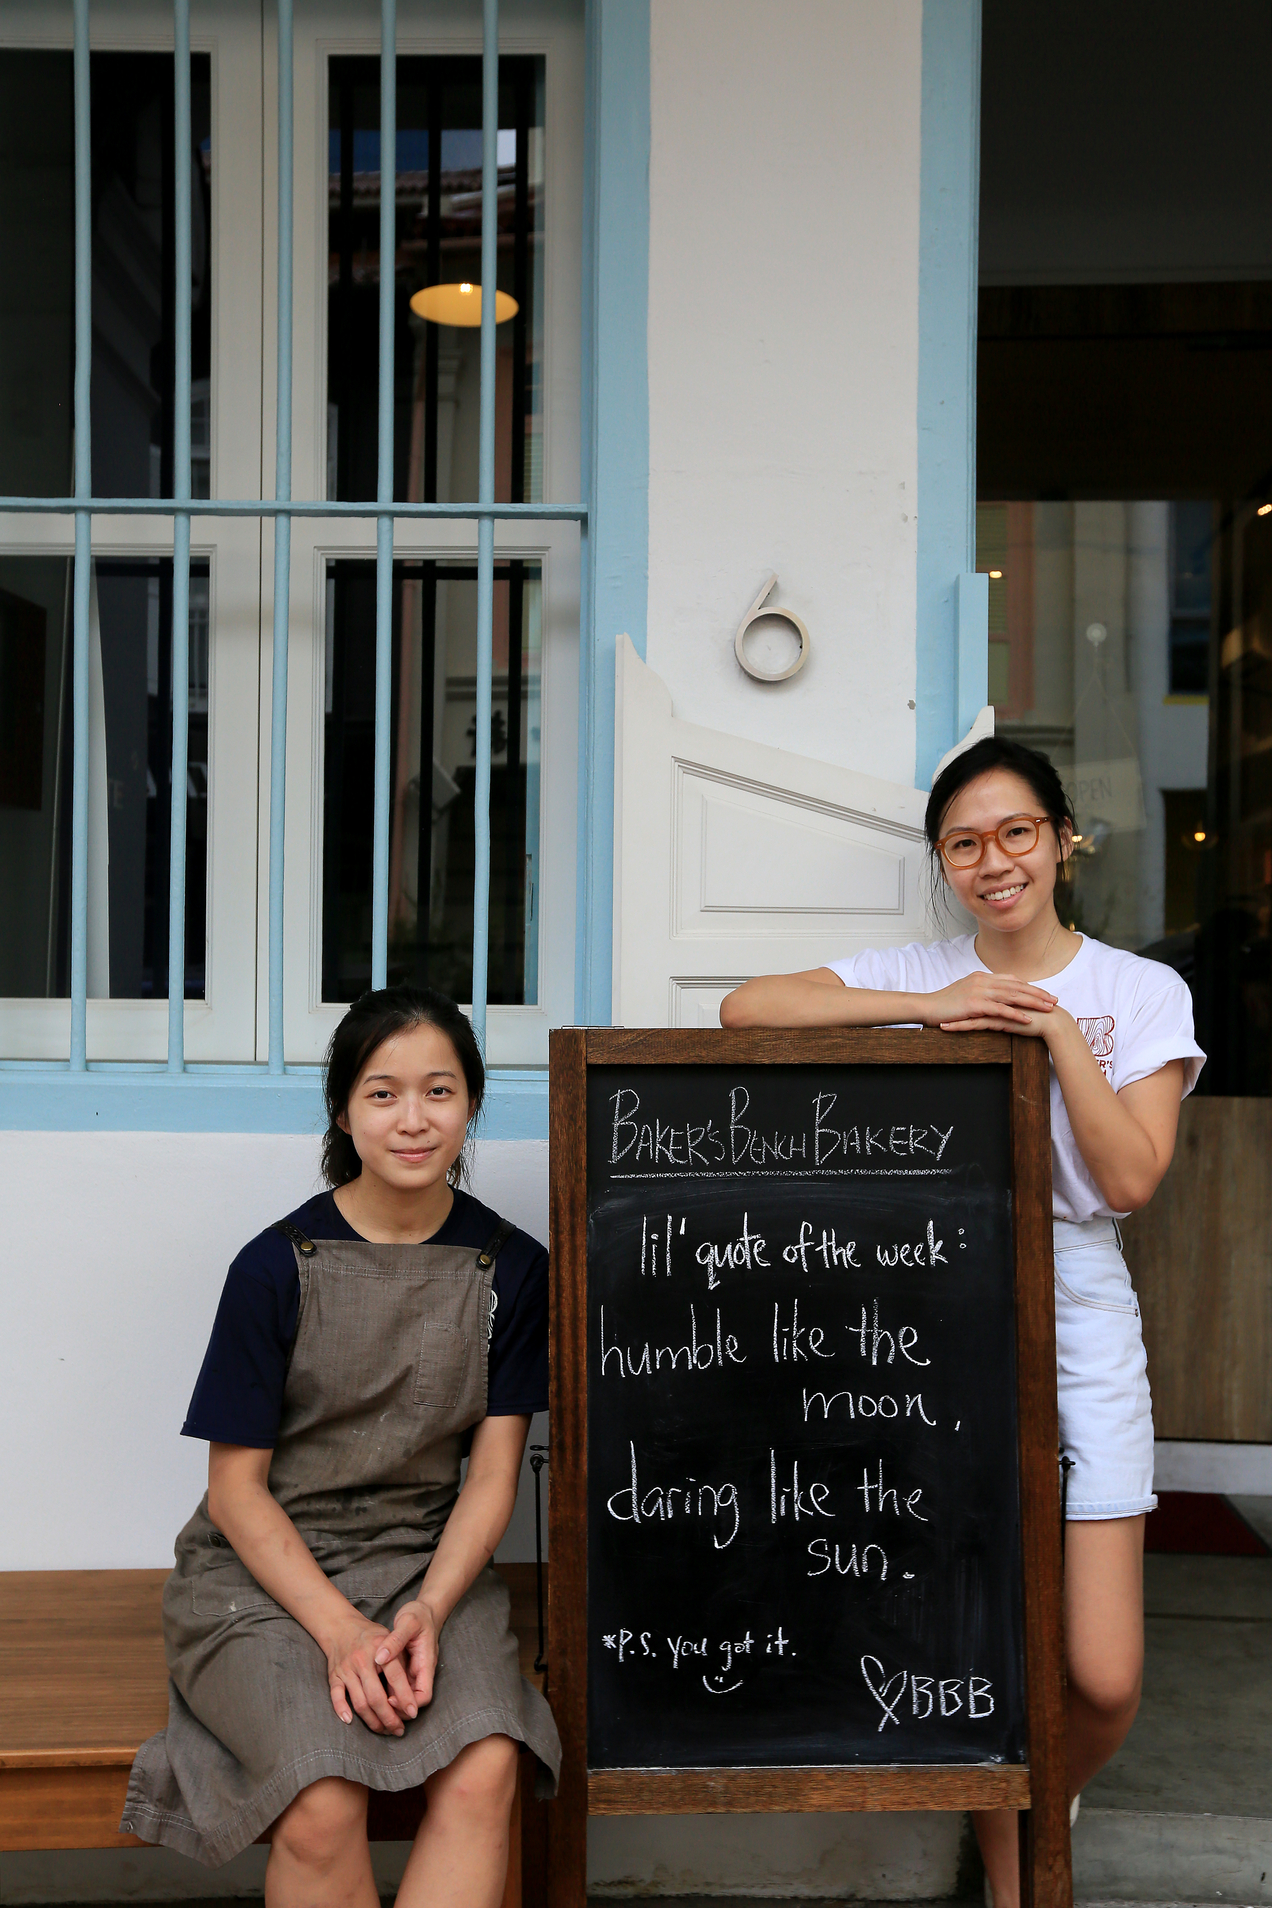 6
OPEN
BAKER'S BENCH BAKERY
lil' quote of the week:
humble like the
moon,
daring like the
sun.
*P.S. you got it.
BBB